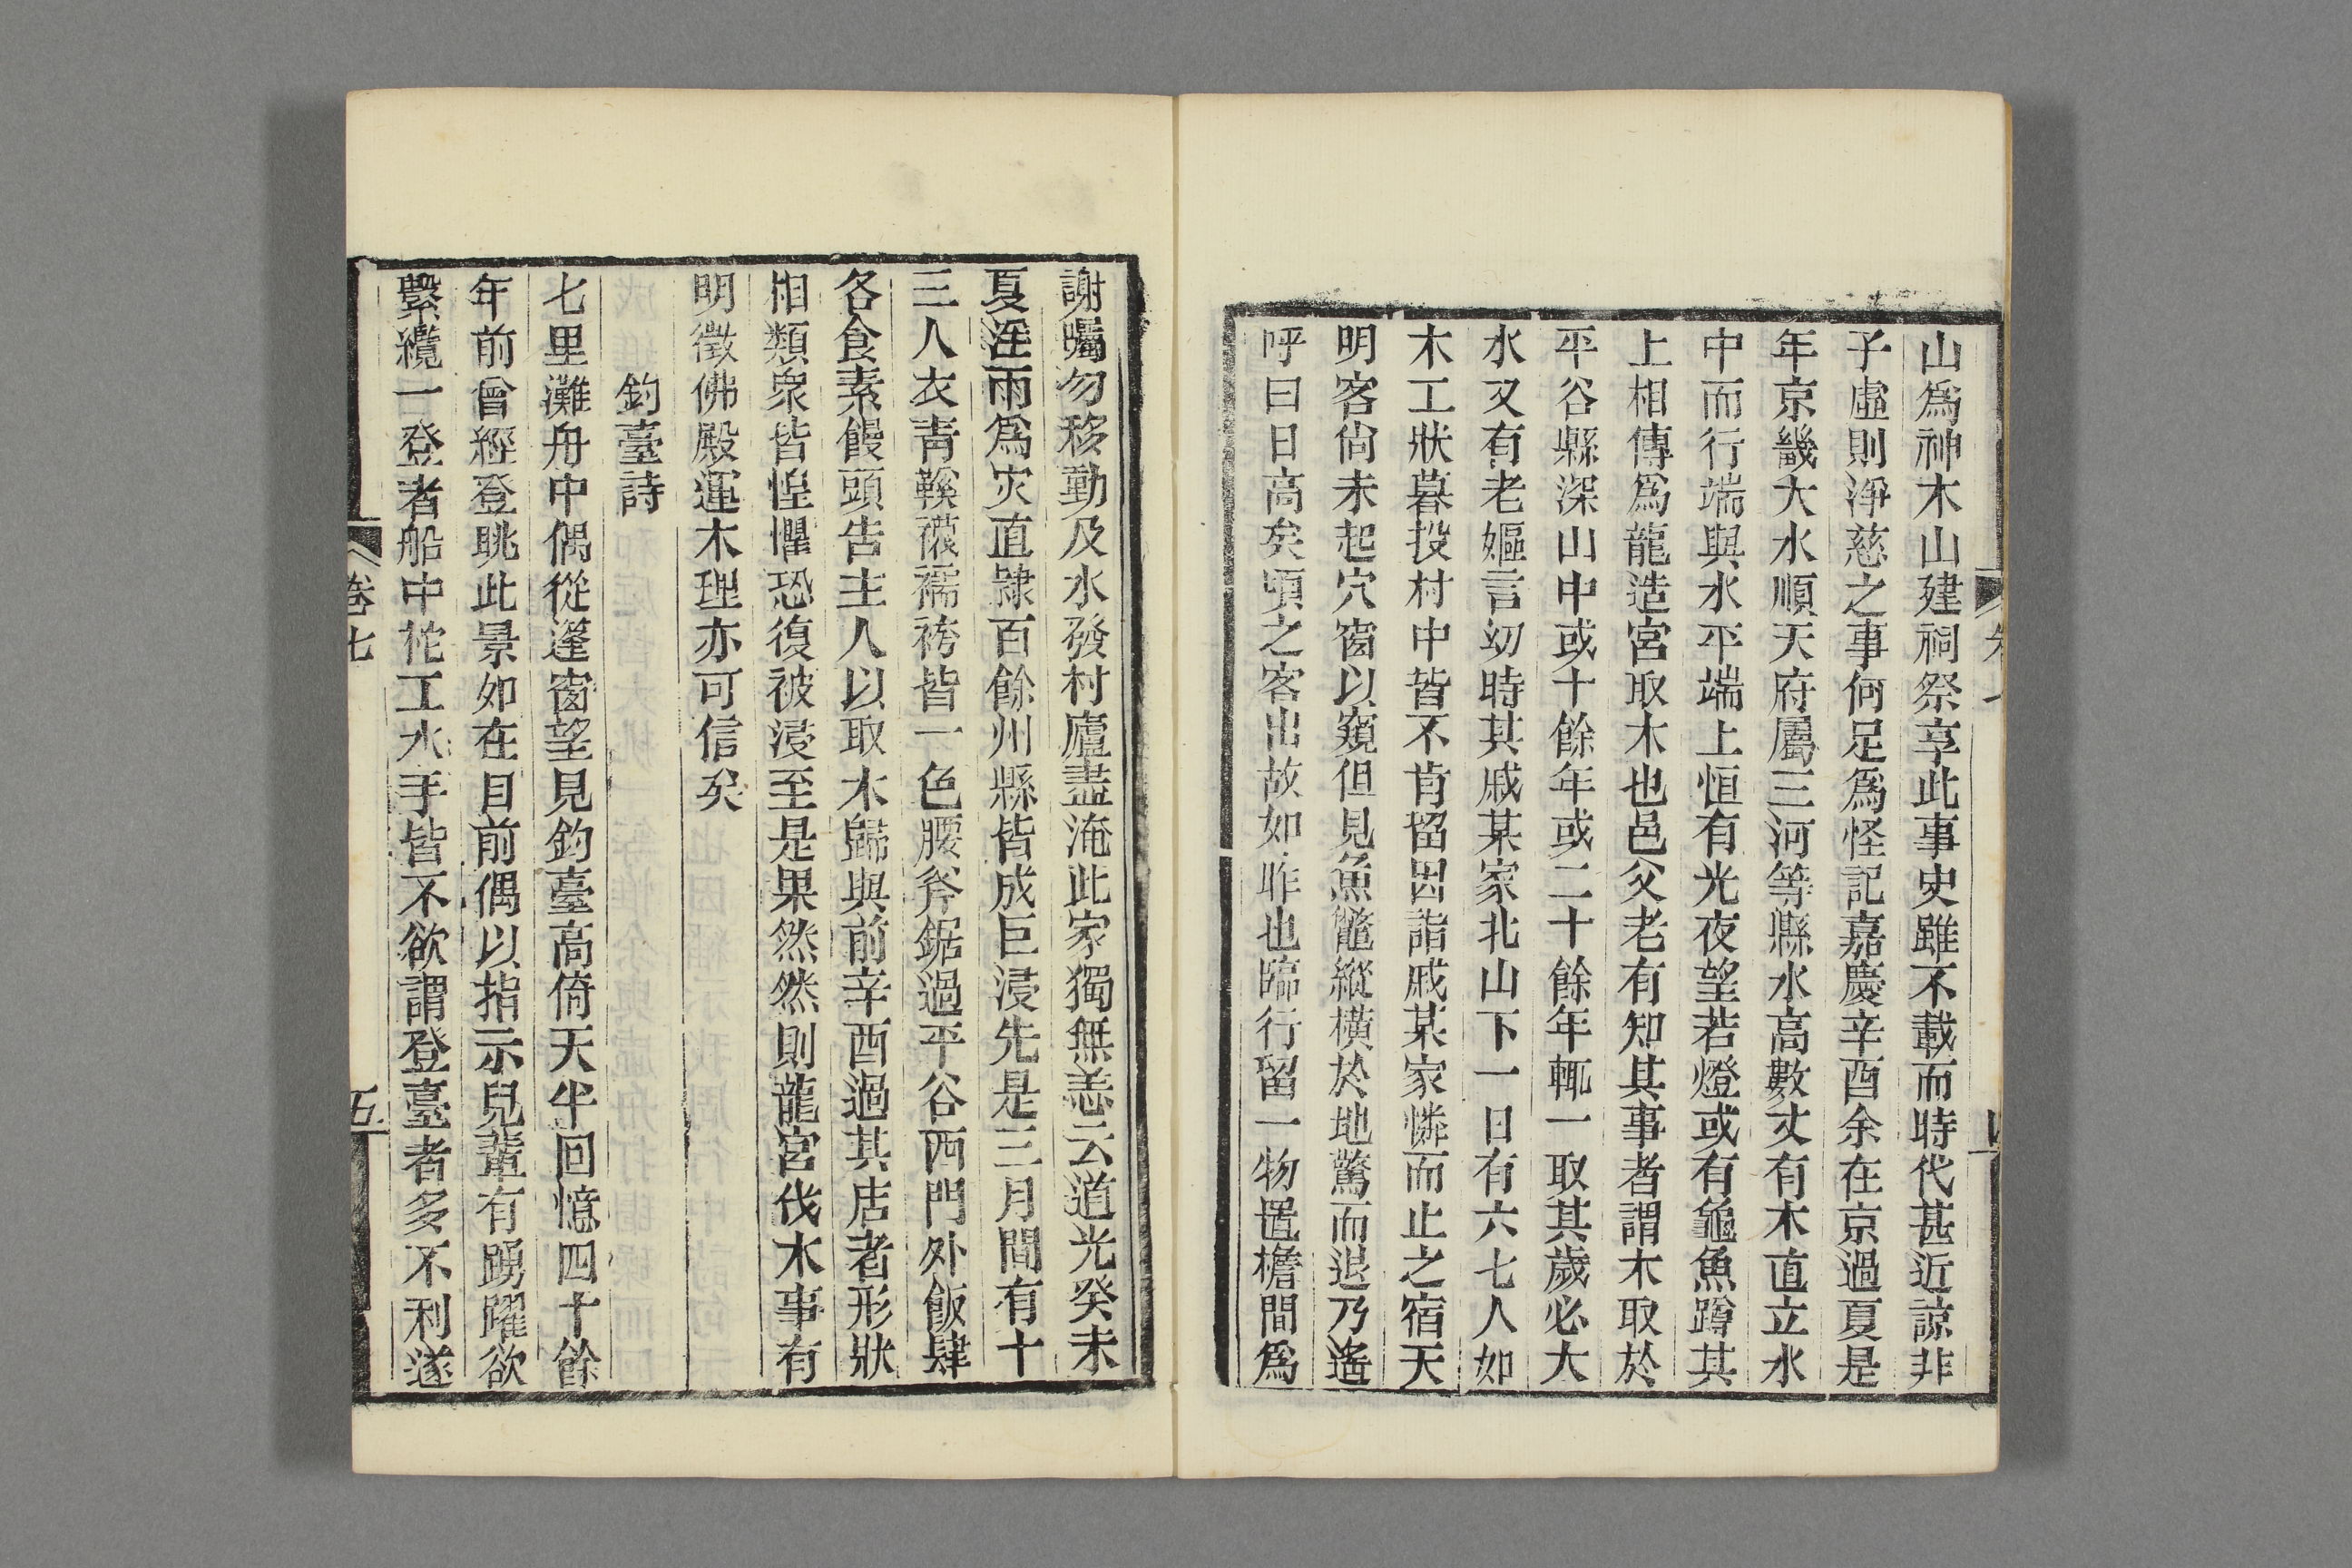 山爲神木山建祠祭享此事史雖不載而時代甚近諒非
子虛則淨慈之事何足爲怪記嘉慶辛酉余在京過夏是
年京畿大水順天府屬三河等縣水高數丈有木直立水
中而行端與水平端上恒有光夜望若燈或有龜魚蹲其
上相傳爲龍造宮取木也邑父老有知其事者謂木取於
平谷縣深山中或十餘年或二十餘年輒一取其歲必大
水又有老嫗言㓜時其戚某家北山下一日有六七人如
木工狀暮投村中皆不肯留因詣戚某家憐而止之宿天
明客尙未起穴窗以窺但見魚鼈縱橫於地驚而退乃遙
呼曰日高矣頃之客出故如昨也臨行留一物置檐間爲
謝囑勿移動及水發村廬盡淹此家獨無恙云道光癸未
夏淫雨爲灾直隸百餘州縣皆成巨浸先是三月間有十
三人衣青鞵襪襦袴皆一色腰斧鋸過平谷西門外飯肆
各食素饅頭告主人以取木歸與前辛酉過其店者形狀
相類衆皆惶懼恐復被浸至是果然然則龍宮伐木事有
明徵佛殿運木理亦可信矣
釣臺詩
七里灘舟中偶從篷窗望見釣臺高倚天半回憶四十餘
年前曾經登眺此景如在目前偶以指示兒輩有踴躍欲
繫纜一登者船中柁工水手皆不欲謂登臺者多不利遂
卷七
五